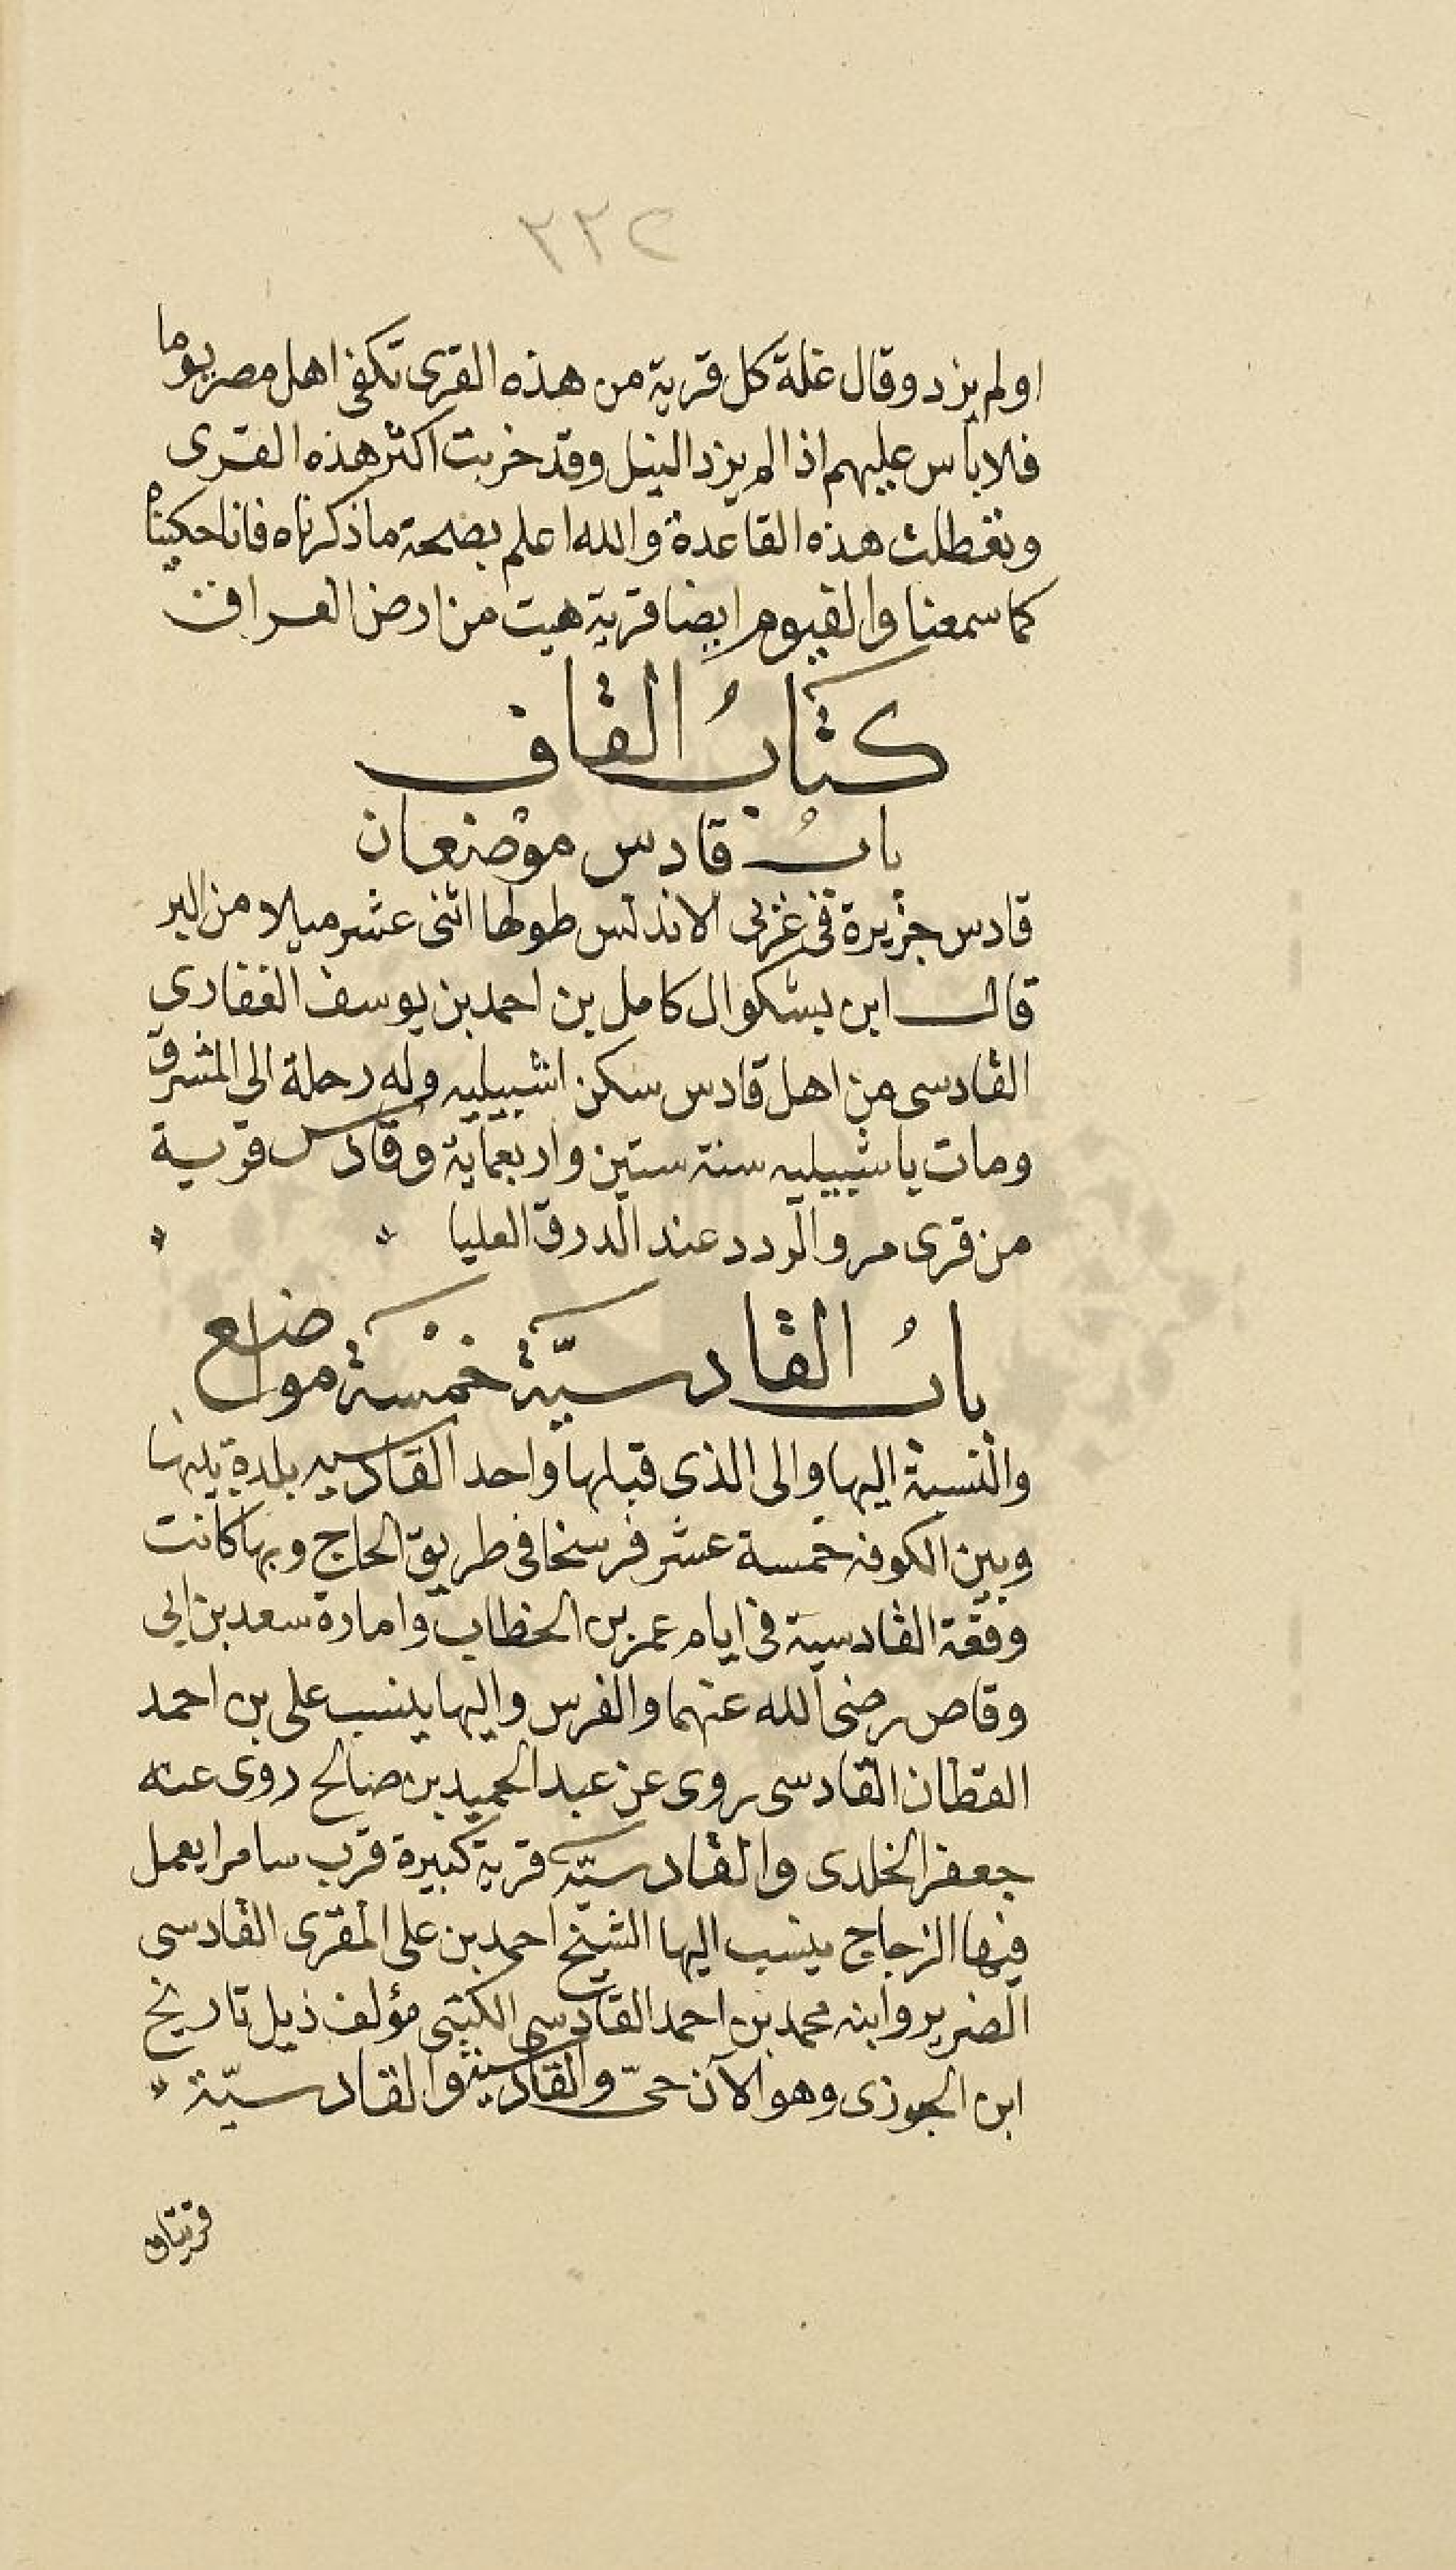 ٢٣٢
اولم يزد وقال غلة كل قرية من هذه القرى تكفى اهل مصر يوما
فلا باس عليهم اذا لم يزد النيل وقد خربت اكثر هذه القرى
وتعطلت هذه القاعدة والله اعلم بصحة ما ذكرناه فانا حكيناه
كما سمعنا والفيوم ايضا قرية هيت من ارض العراق
كتابُ القاف
بابُ قادس موضعان
قادس جزيرة فى غربى الاندلس طولها اثنى عشر ميلا من البر
قال ابن بشكوال كامل بن احمد بن يوسف الغفارى
القادسى من اهل قادس سكن اشبيليه وله رحلة الى المشرق
ومات باشبيليه سنة ستين واربعماية وقادس قرية
من قرى مرو الرود عند الدرق العليا
بابُ القادسيّة خمْسة مواضع
والنسبة اليها والى الذى قبلها واحد القادسيه بلدة بينها
وبين الكوفه خمسة عشر فرسخا فى طريق الحاج وبها كانت
وقعة القادسية فى ايام عمر بن الخطاب وامارة سعد بن ابى
وقاص رضى الله عنهما والفرس واليها ينسب على بن احمد
القطان القادسى يروى عن عبد الحميد بن صالح روى عنه
جعفر الخلدى والقادسيّة قرية كبيرة قرب سامرا يعمل
فيها الزجاج ينسب اليها الشيخ احمد بن على المقرى القادسى
الضرير وابنه محمد بن احمد القادسى الكتبى مؤلف ذيل تاريخ
ابن الجوزى وهو الآن حىّ والقادسية والقادسيّة
قريتان